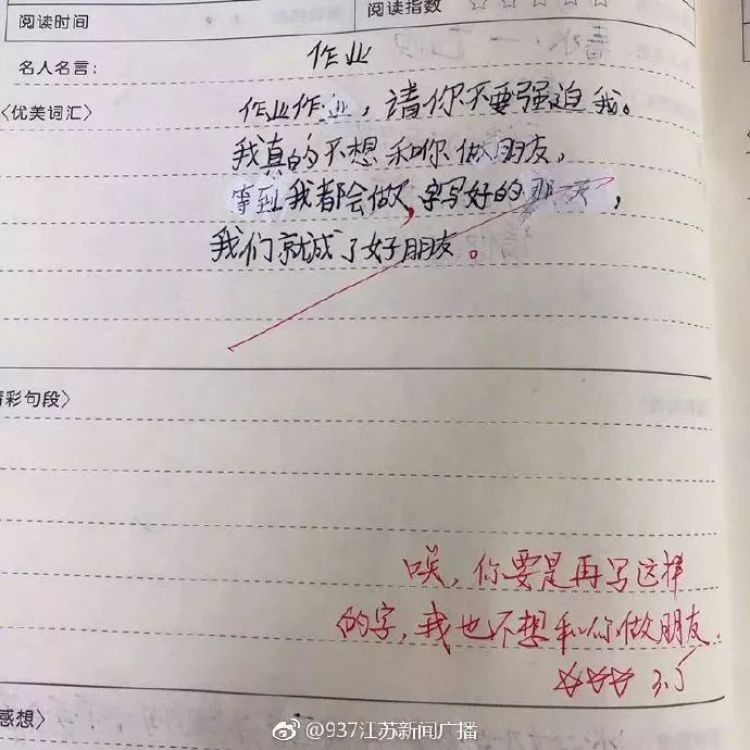 阅读时间
阅读指数 ☆☆☆☆☆
名人名言:
作业
〈优美词汇〉
作业作业，请你不要强迫我。
我真的不想和你做朋友，
等到我都会做，字写好的那一天，
我们就成了好朋友。
彩句段〉
唉，你要是再写这样
的字，我也不想和你做朋友.
☆☆☆ 3.5
感想〉
@937江苏新闻广播